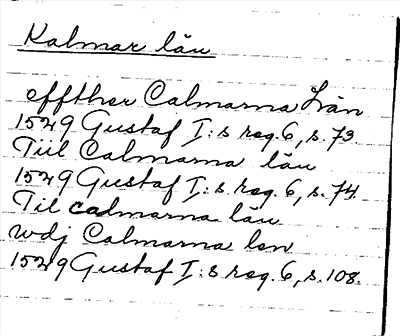 Kalmar län
effther Calmarna Län
1529 Gustaf I:s reg. 6, s. 73.
Tiil Calmarna län
1529 Gustaf I:s reg. 6, s. 74.
Til calmarna län
wdj Calmarna len
1529 Gustaf I:s reg. 6, s. 108.